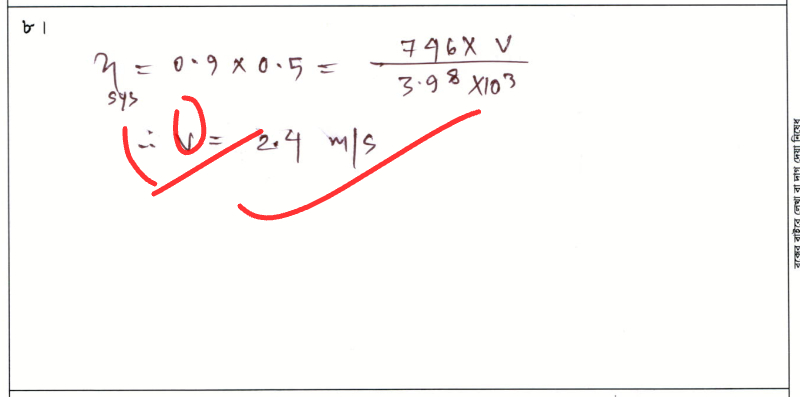 ৮।
η sys = 0.9 × 0.5 = 796 × V / 3.98 × 10³
∴ V = 2.4 m/s
বক্সের বাইরে লেখা বা দাগ দেয়া নিষেধ